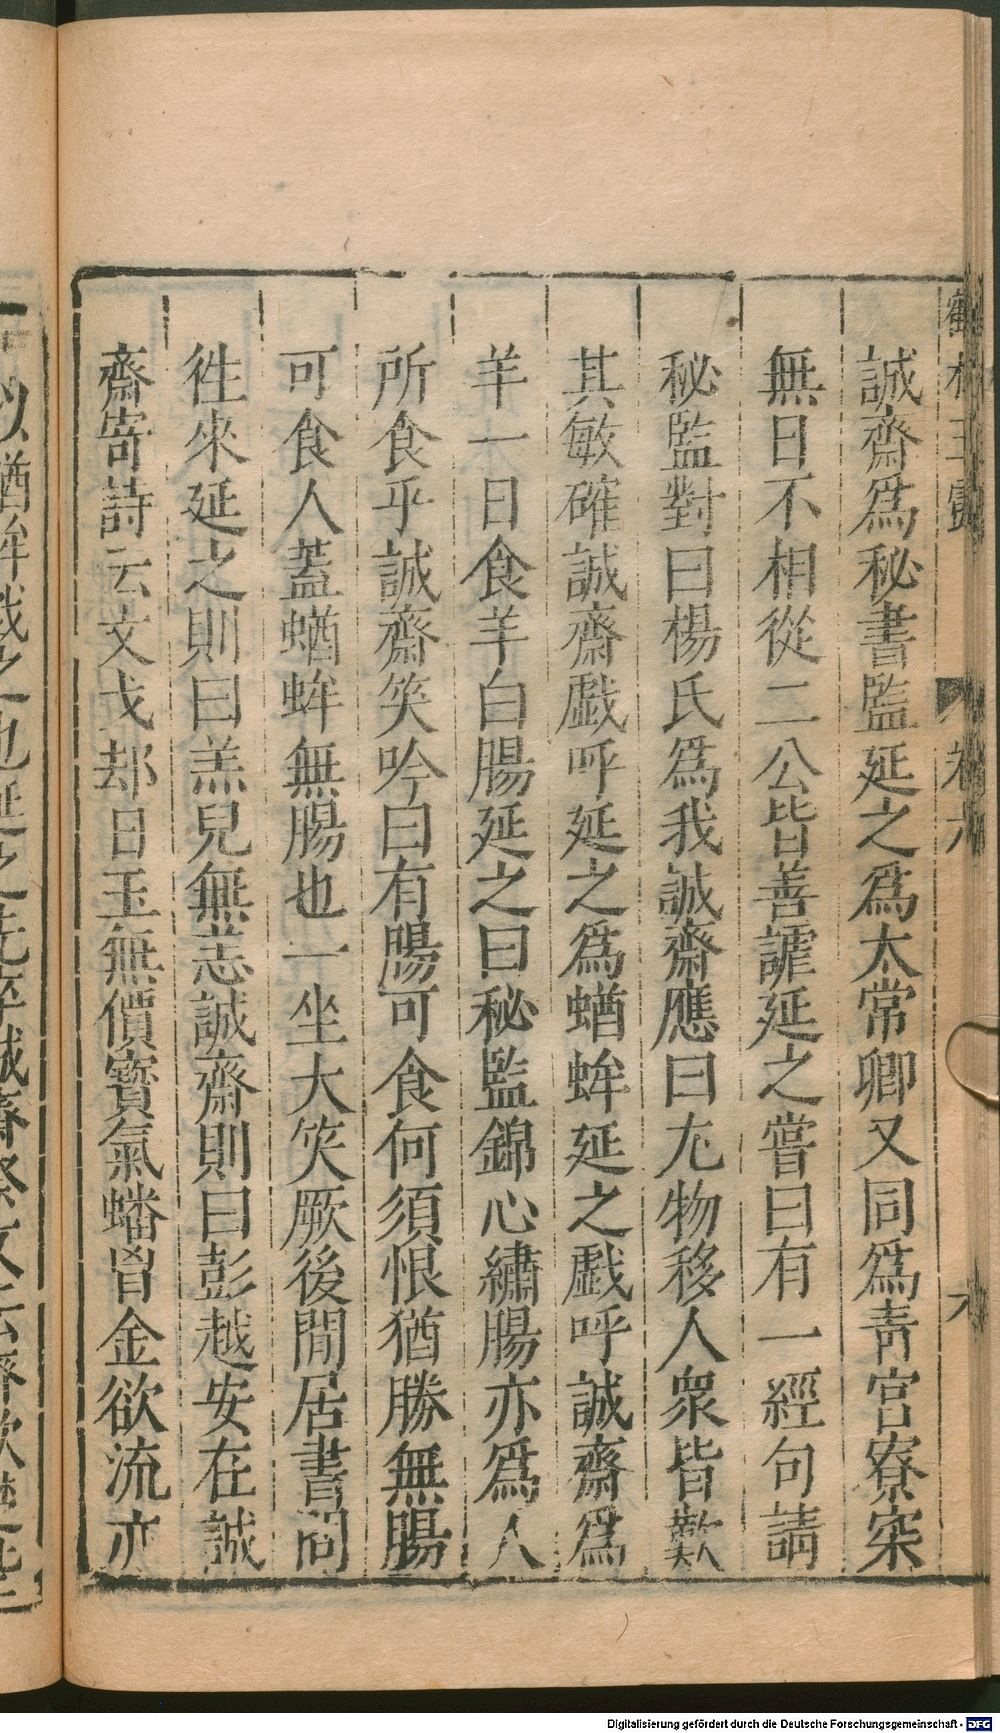 誠齋爲秘書監延之爲太常卿又同爲青宮寮寀
無日不相從二公皆善謔延之嘗曰有一經句請
秘監對曰楊氏爲我誠齋應曰尤物移人衆皆歎
其敏確誠齋戲呼延之爲蝤蛑延之戲呼誠齋爲
羊一日食羊白腸延之曰秘監錦心繡腸亦爲人
所食乎誠齋笑吟曰有腸可食何須恨猶勝無腸
可食人蓋蝤蛑無腸也一坐大笑厥後閒居書問
徃來延之則曰羔兒無恙誠齋則曰彭越安在誠
齋寄詩云文戈却日玉無價寶氣蟠胷金欲流亦
以蝤蛑戲之也延之先卒誠齋祭文云齊歌楚
Digitalisierung gefördert durch die Deutsche Forschungsgemeinschaft - DFG